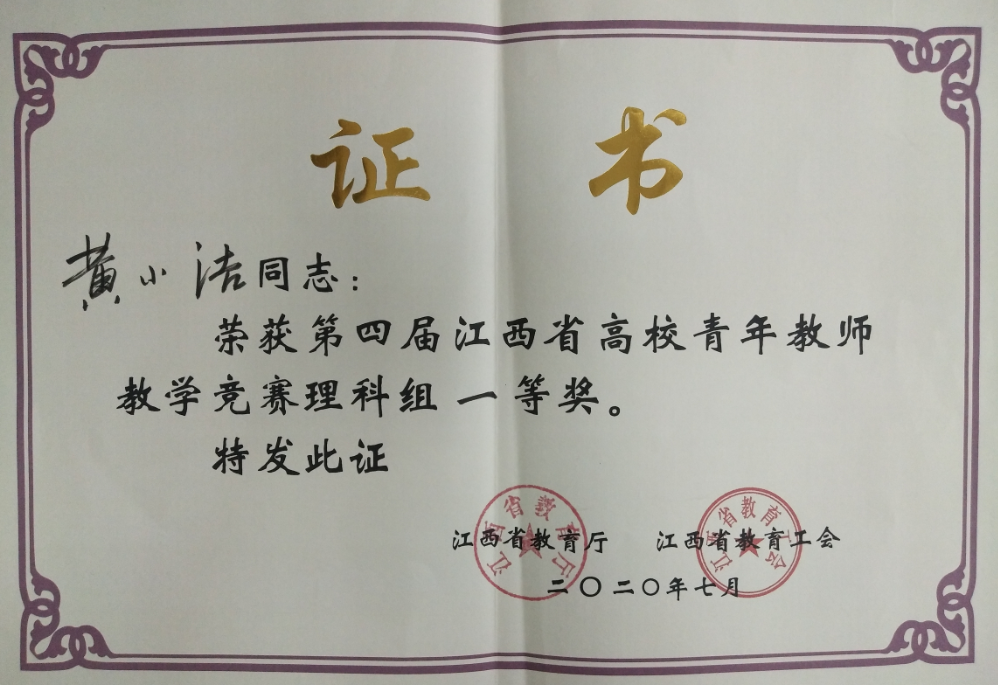 证书
黄小洁同志：
荣获第四届江西省高校青年教师
教学竞赛理科组一等奖。
特发此证
江西省教育厅 江西省教育工会
二〇二〇年七月
江西省教育厅
江西省教育工会